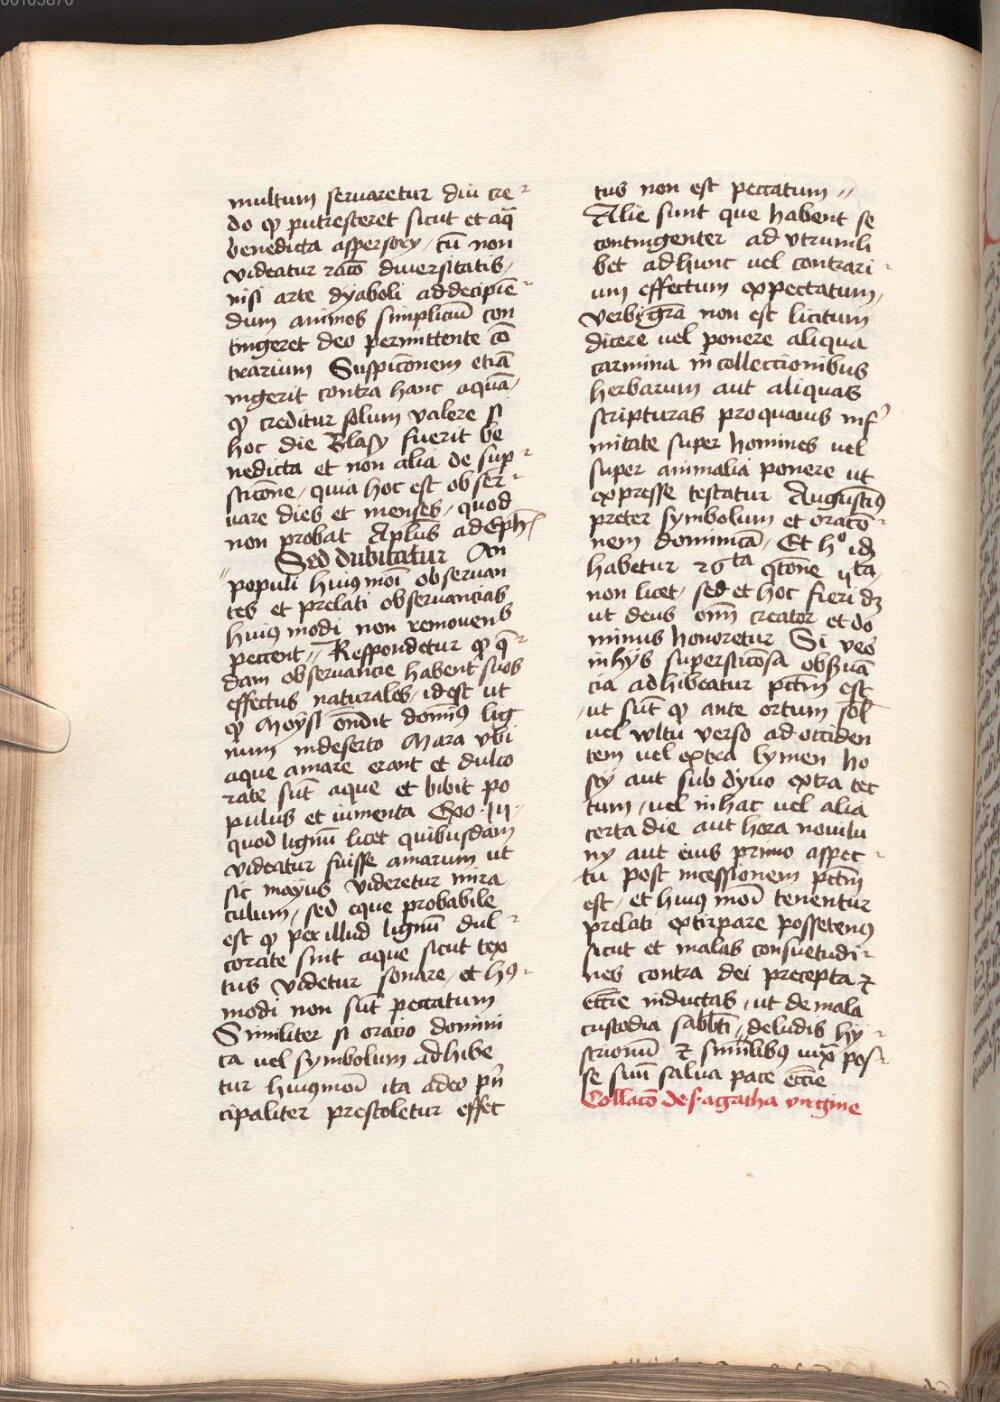 multum seruaretur diu cre
do ꝙ putresceret sicut et aq̄
benedicta aspersoꝝ / cū non
videatur racō diuersitatis /
nisi arte dyaboli ad decipiē
dum animos simpliciū con
tingeret deo permittente cō
trarium Suspicōnem etiā
ingerit contra hanc aquā /
ꝙ creditur solum valere si
hoc die Blasy fuerit be
nedicta et non alia de sup
sticōne / quia hoc est obser
uare dies et menses / quod
non probat Aplūs ad Eph̄
Sed dubitatur An
populi huiꝰmōi obseruan
tes et prelati obseruancias
huiusmodi non remouens
peccent // Respondetur ꝙ q̄
dam obseruancie habent suos
effectus naturales / id est ut
ꝙ Moysi ōndit domīꝰ lig
num in deserto Mara vbi
aque amare erant et dulco
rate sūt aque et bibit po
pulus et iumenta Exo
quod lignū licet quibusdam
videatur fuisse amarum ut
sic mayus videretur mira
culum / sed eque probabile
est ꝙ per illud lignū dul
corate sint aque sicut tex
tus videtur sonare / et hꝰ
modi non sūt peccatum
Similiter si oracio domini
ca uel symbolum adhibe
tur huiusmoī ita adeo pn̄
cipaliter prestoletur effec
tus non est peccatum //
Alie sunt que habent se
contingenter ad vtrumli
bet ad hunc uel contrari
um effectum expectatum /
verbigrā non est licitum
dicere uel ponere aliqua
carmina in collectionibus
herbarum aut aliquas
scripturas pro quauis inf
mitate super homines uel
super animalia ponere ut
expresse testatur Augustīꝰ
preter symbolum et oracō
nem dominicā / Et h° id
habetur 26ta q̄tōne
non licet / sed et hoc fieri dꝫ
ut deus om̄ creator et do
minus honoretur Si veō
in hys supersticōsa obs̄uā
cia adhibeatur pctm̄ est
/ ut sūt ꝙ ante ortum sol
uel wltu verso ad occiden
tem uel extra lymen ho
sty aut sub dyuo extra tec
tum / uel in hac uel alia
certa die aut hora nouilu
ny aut eius primo aspec
tu post incessionem pctm̄
est / et huiꝰ moī tenentur
prelati extirpare possetenꝰ
sicut et malas consuetudi
nes contra dei precepta ⁊
eccīe inductas / ut de mala
custodia sabbtī / de ludis hy
strionū ⁊ similibꝰ iuxͣ pos
se suū salua pace eccīe
Collacō de s. agatha virgine